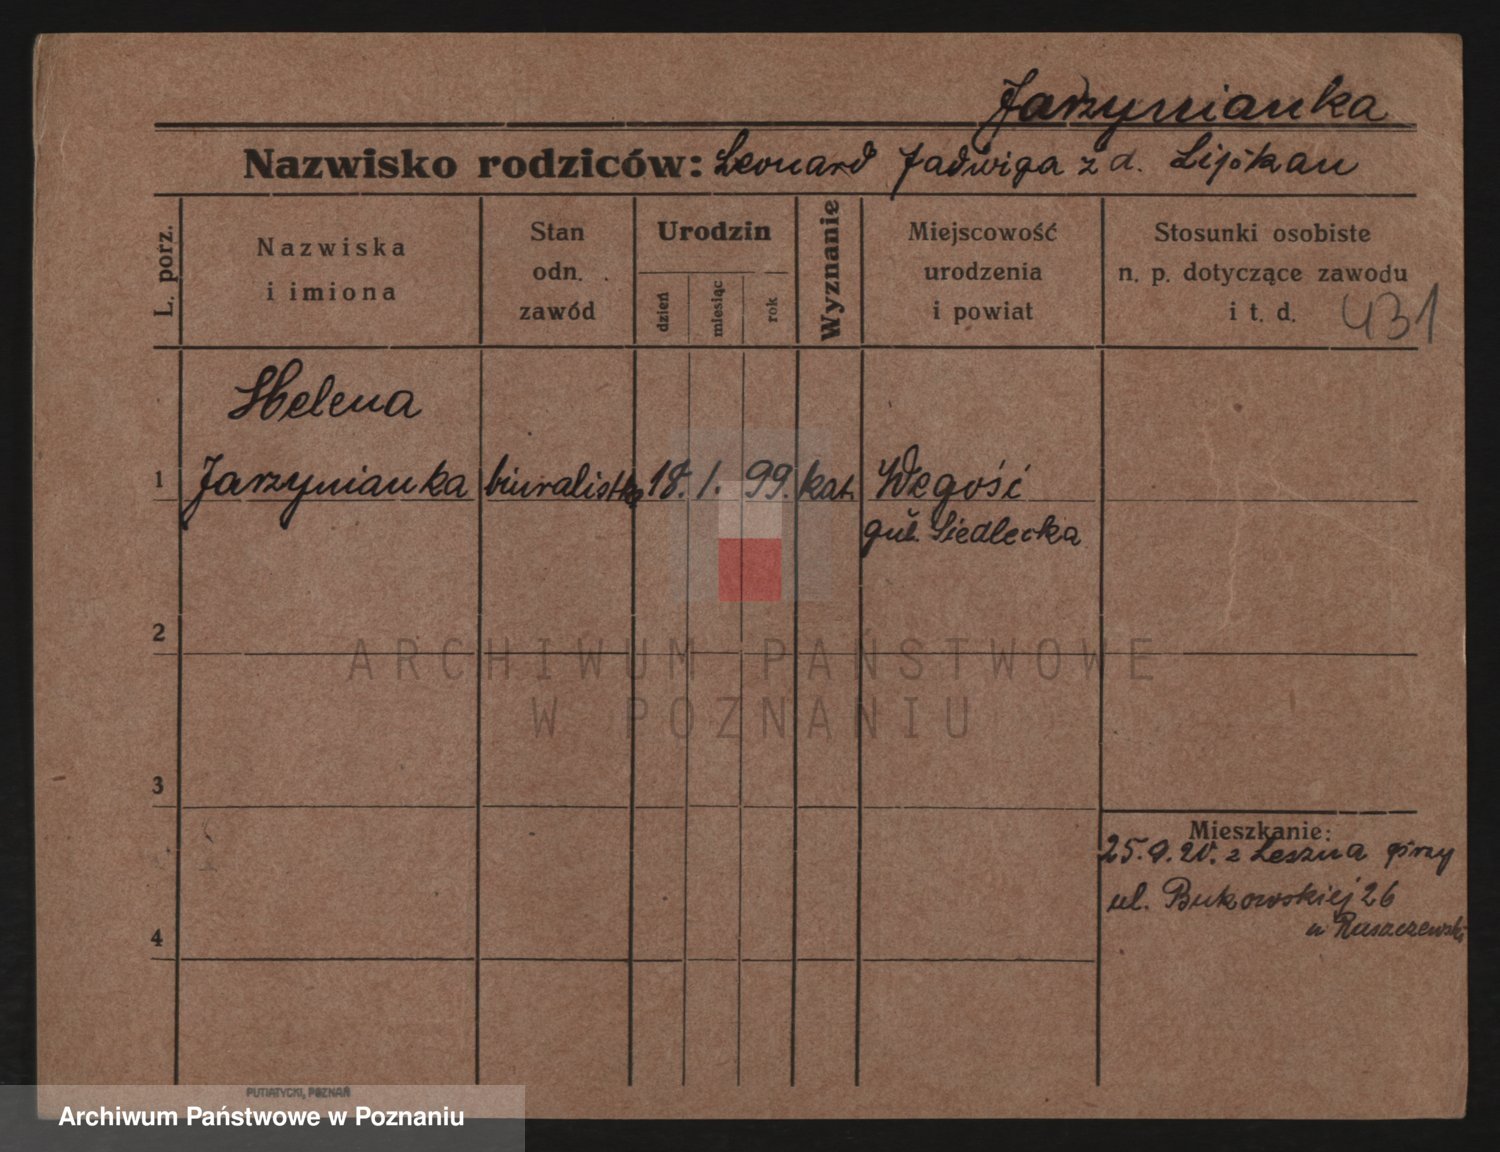 Jarzynianka
Nazwisko rodziców: Leonard Jadwiga z d.
L. porz.
Nazwiska
i imiona
Stan
odn.
zawód
Urodzin
dzień
miesiąc
rok
Wyznanie
Miejscowość
urodzenia
i powiat
Stosunki osobiste
n. p. dotyczące zawodu
i t. d.
431
Helena
1 Jarzynianka biuralistka 18. 1. 99. kat. Węgość
gub. Siedlecka
2
ARCHIWUM PAŃSTWOWE
W POZNANIU
3
Mieszkanie:
25.9.20. z Leszna przy
ul. Bukowskiej 26
u Raszczewski
4
PUTIATYCKI, POZNAŃ
Archiwum Państwowe w Poznaniu